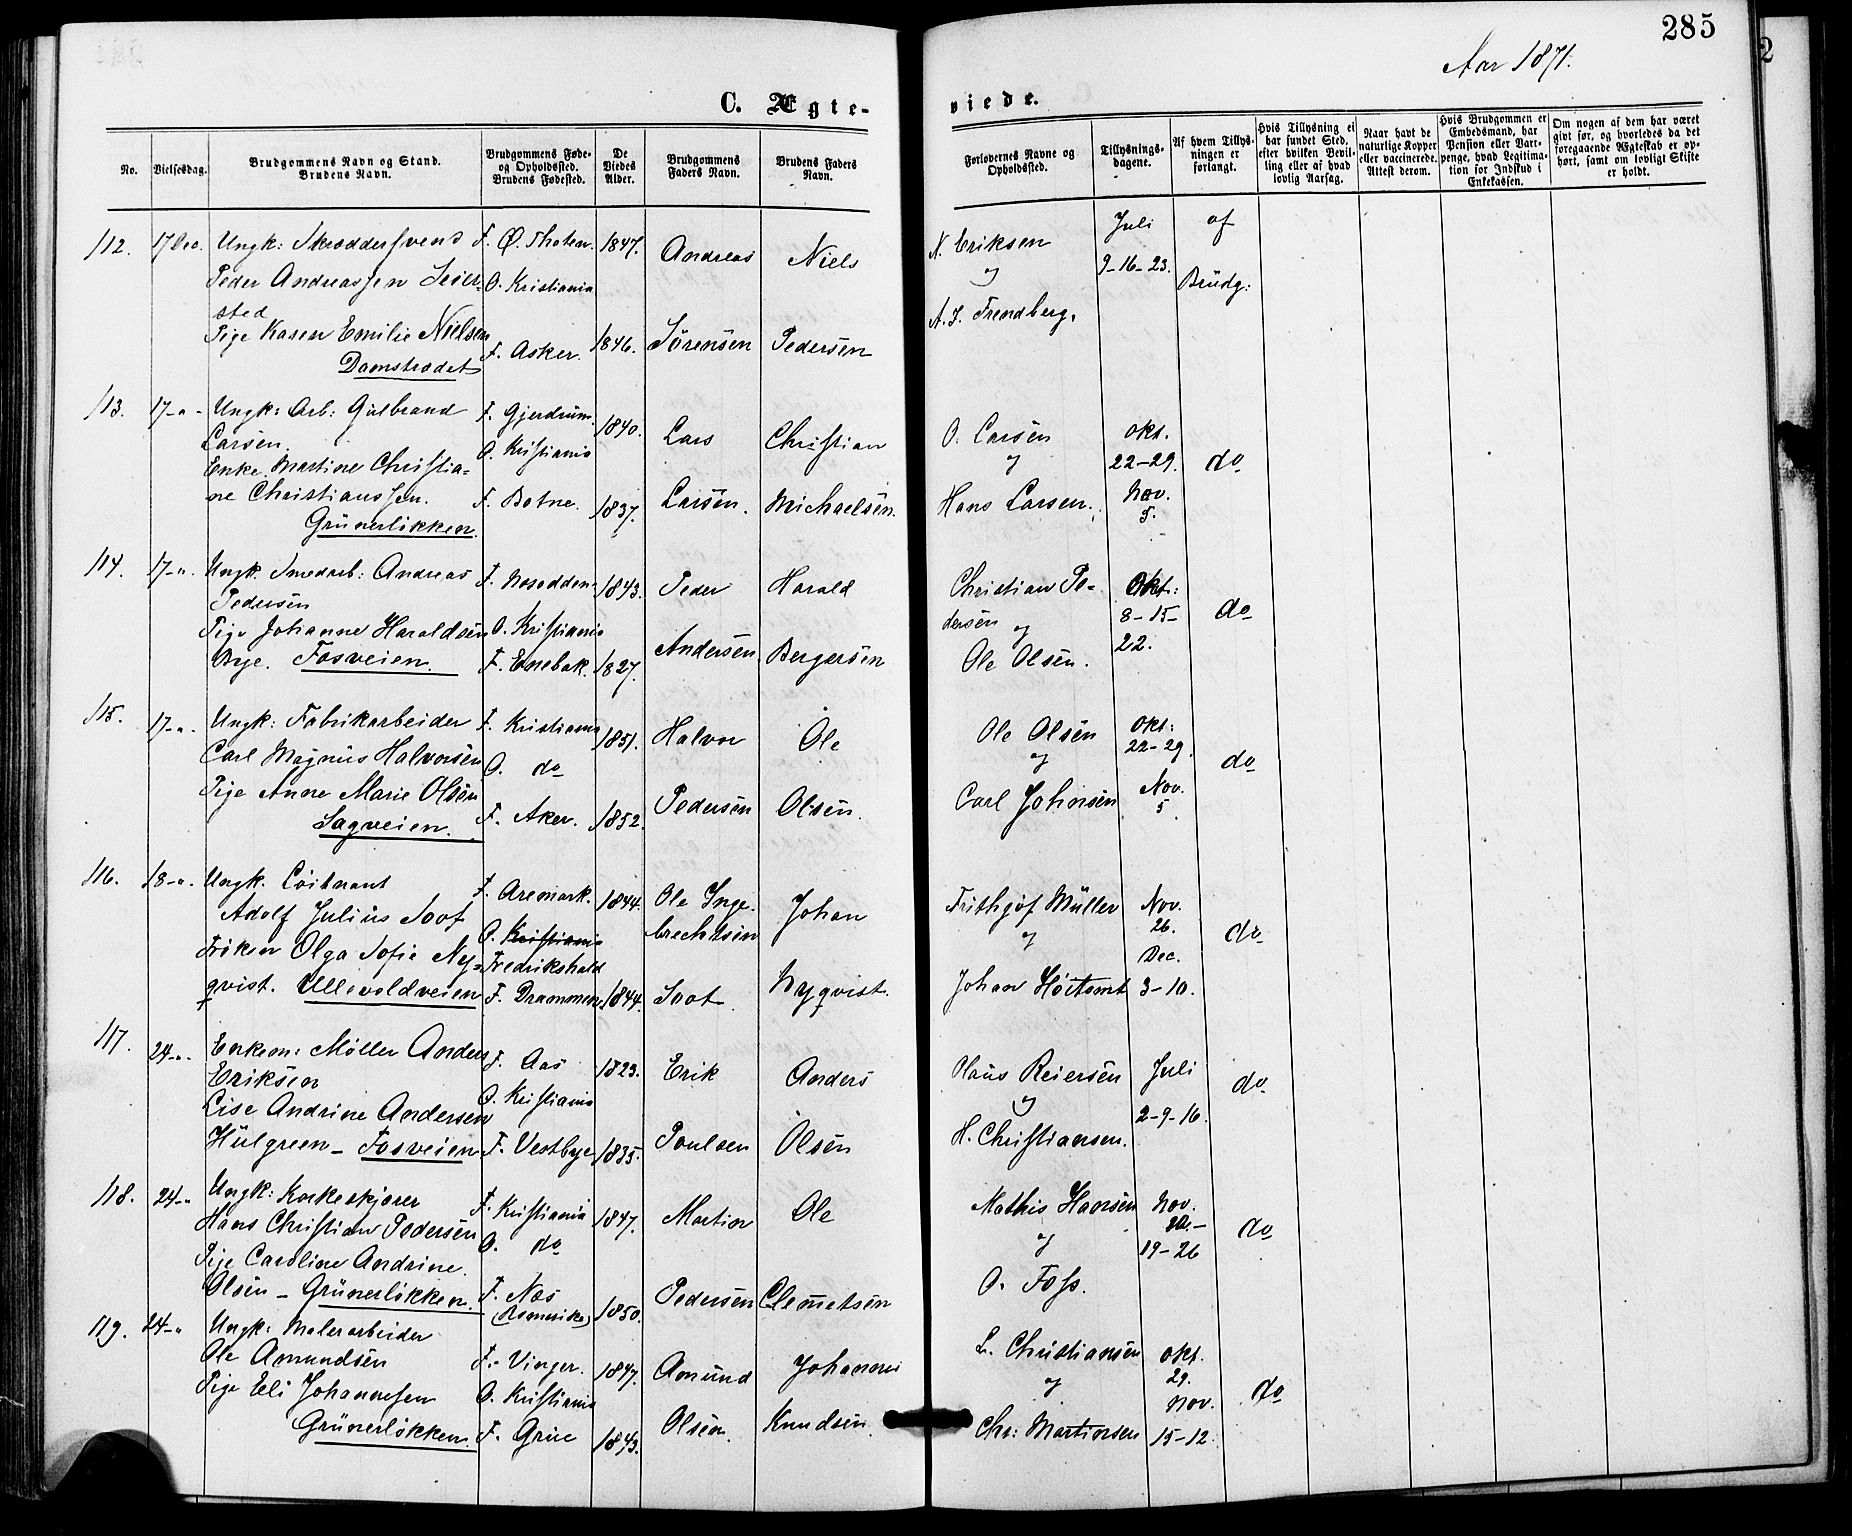 285
Aar 1871.
C. Ægte-
viede.
No.
Vielsesdag.
Brudgommens Navn og Stand.
Brudens Navn.
Brudgommens Føde-
og Opholdssted.
Brudens Fødested.
De
Viedes
Alder.
Brudgommens
Faders Navn.
Brudens Faders
Navn.
Forlovernes Navne og
Opholdssted.
Tillysnings-
dagene.
Af hvem Tillys-
ningen er
forlangt.
Hvis Tillysning ei
har fundet Sted,
efter hvilken Bevil-
ling eller af hvad
lovlig Aarsag.
Naar havt de
naturlige Kopper
eller vaccinerede.
Attest derom.
Hvis Brudgommen er
Embedsmand, har
Pension eller Vart-
penge, hvad Legitima-
tion for Indskud i
Enkekassen.
Om nogen af dem har været
givt før, og hvorledes da det
foregaaende Ægteskab er op-
hørt, samt om lovligt Skifte
er holdt.
112. 17 Dec. Ungk: Skræddersvend F. Ø. Thoten. 1847. Andreas Niels N. Eriksen Juli af
Peder Andreassen Seier- O. Kristiania og 9-16-23. Brudg:
sted
Pige Karen Emilie Nielsen F. Asker. 1846. Sørensen Pedersen A. J. Trendberg.
Damstrædet
113. 17-"- Ungk: Arb: Gulbrand F. Gjerdrum. 1840. Lars Christian O. Larsen Okt.
Larsen. O. Kristiania og 22-29. do
Enke Martine Christia-
ne Christianssen. F. Botne. 1837. Larsen. Michaelsen. Hans Larsen. Nov.
Grünerløkken. 5.
114. 17-". Ungk. Smedarb: Andreas F. Nesodden. 1843. Peder Harald Christian Pe- Okt:
Pedersen dersen og 8-15- do
Pige Johanne Haraldsen O. Kristiania Andersen Bergersen 22.
Bye. Fosveien. F. Enebak. 1827. Ole Olsen.
115. 17-". Ungk: Fabrikarbeider F. Kristiania 1851. Halvor Ole Ole Olsen Okt:
Carl Magnus Halvorsen O. do og 22-29. do
Pige Anne Marie Olsen F. Aker. 1852. Pedersen Olsen. Carl Johnsen Nov.
Sagveien. 5.
116. 18-". Ungk. Løitnant F. Aremark. 1844. Ole Inge- Johan Frithjof Müller Nov.
Adolf Julius Soot O. Kristiania brechtsen og 26. do
Frøken Olga Sofie Ny- Fredrikshald Dec.
qvist. Ullevoldveien F. Drammen. 1844. Soot. Nyqvist. Johan Høitomt 3-10.
117. 24-". Enkem: Møller Anders F. Aas 1823. Erik Anders Claus Reiersen Juli do
Eriksen O. Kristiania og 2-9-16.
Lise Andrine Andersen
Hulgreen - Fosveien F. Vestbye 1835. Poulsen Olsen H. Christiansen.
118. 24-" Ungk: Korkeskjærer F. Kristiania 1847. Martin Ole Mathis Hansen Nov.
Hans Christian Pedersen O. do og 19-26 do
Pige Caroline Andrine
Olsen - Grünerløkken. F. Næs 1850. Pedersen Clemetsen O. Foss.
(Romerike)
119. 24-" Ungk: Malerarbeider L. Christiansen Okt.
Ole Amundsen F. Vinger. 1847. Amund Johannes og 29. do
Pige Eli Johannessen O. Kristiania Nov.
Grünerløkken. F. Grue 1843. Olsen. Knudsen. Chr: Martinsen 15-12.